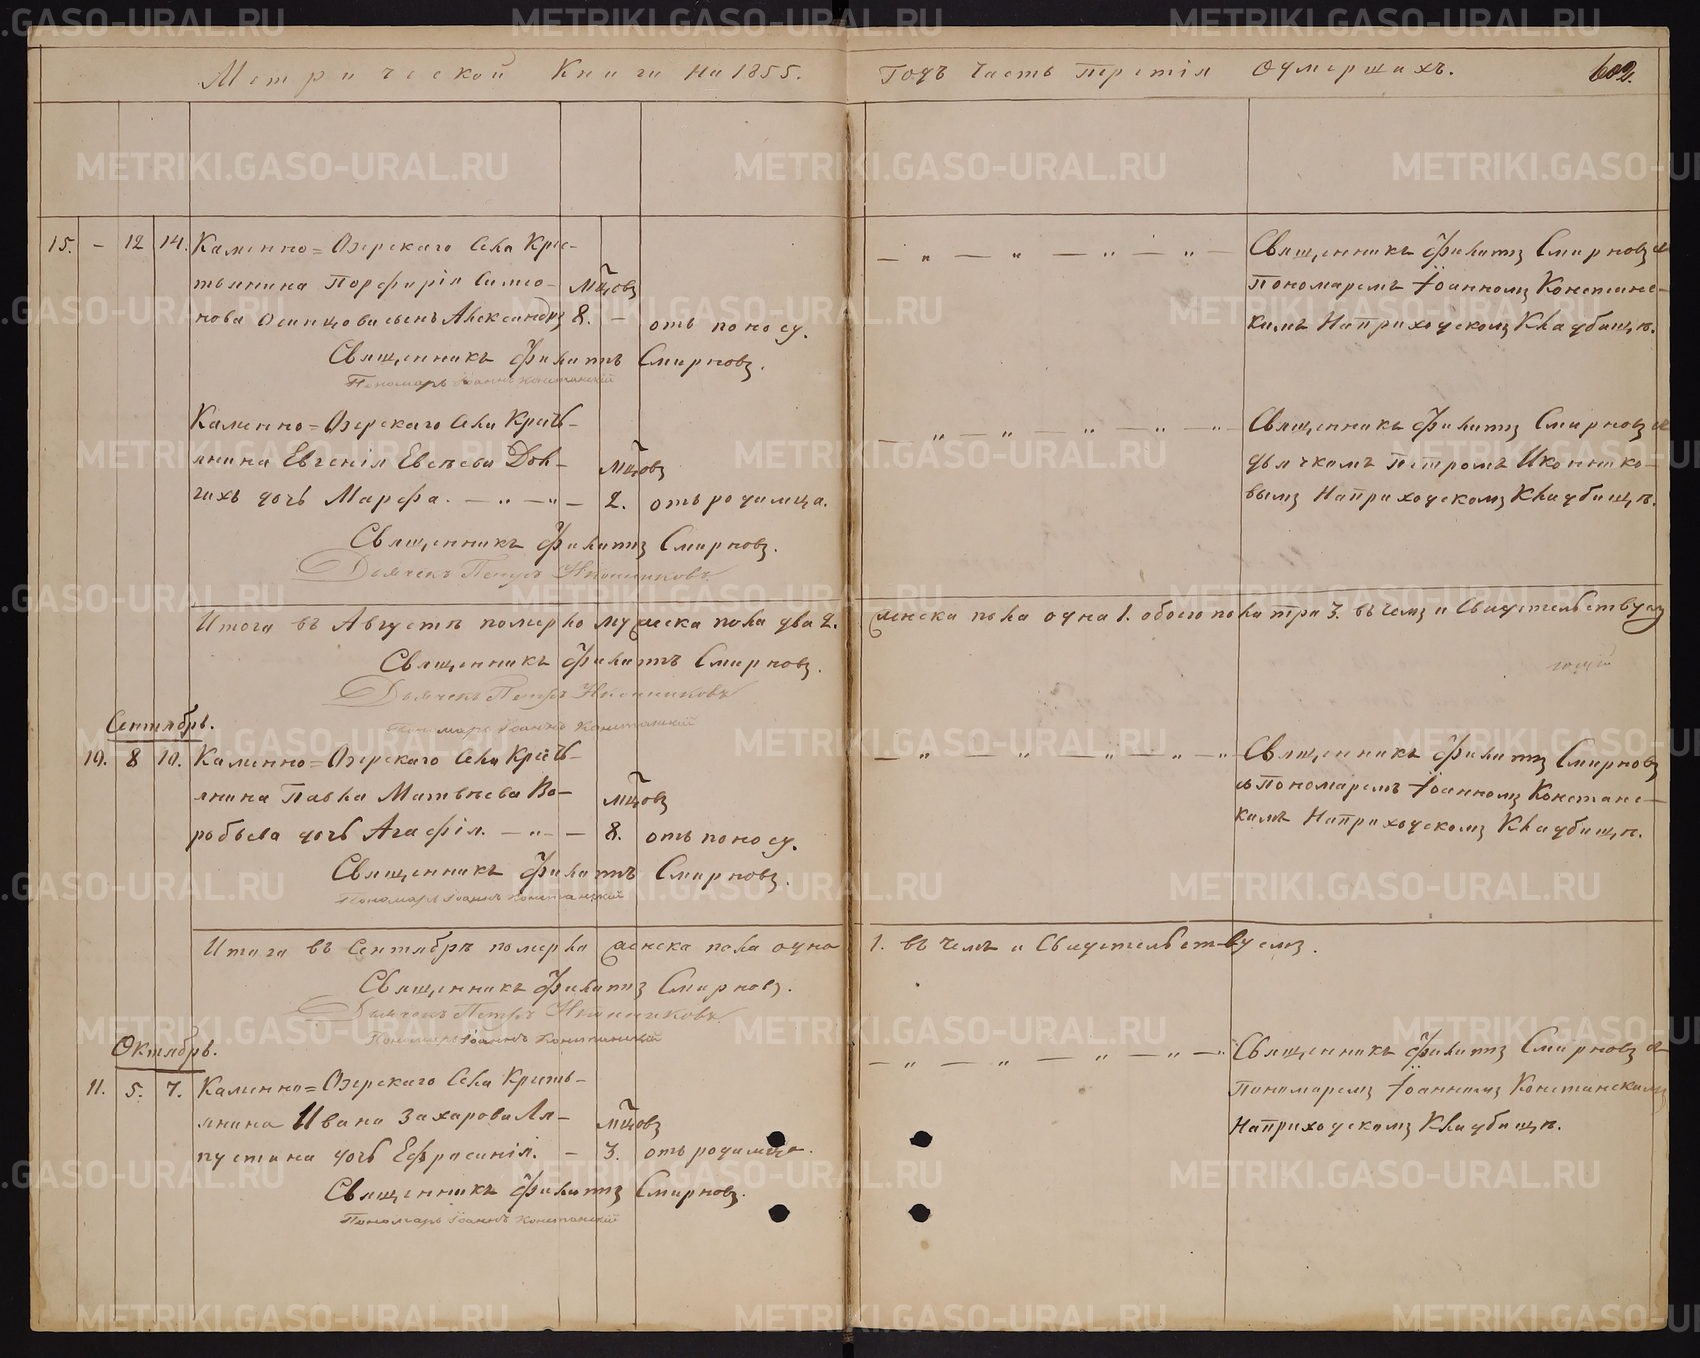 Метрической Книги на 1855.
Годъ Часть Третія О умершихъ.
602.
15. – 12 14. Каменно=Озерскаго Села Крес-
тьянина Порфирія Симео- мцовъ
нова Осинцова сынъ Александръ 8. – отъ поносу.
Священникъ Филиппъ Смирновъ.
Пономарь Іоаннъ Констанскій
Священникъ Филиппъ Смирновъ и
Пономаремъ Іоанномъ Констанс-
кимъ На приходскомъ Кладбищѣ.
Каменно=Озерскаго Села Кресть-
янина Евгенія Евсѣева Дол- мцовъ
гихъ дочь Марфа. – 2. отъ родимца.
Священникъ Филиппъ Смирновъ.
Дьячекъ Петръ Иконниковъ
Священникъ Филиппъ Смирновъ и
дьячкомъ Петромъ Иконнико-
вымъ На приходскомъ Кладбищѣ.
Итого въ Августѣ померло мужеска пола два 2.
женска пола одна 1. обоего пола три 3. въ чемъ и Свидетельствуемъ
Священникъ Филиппъ Смирновъ.
Дьячекъ Петръ Иконниковъ
Пономарь Іоаннъ Констанскій
Сентябрь.
10. 8 10. Каменно=Озерскаго Села Кресть-
янина Павла Матвѣева Во- мцовъ
робьева дочь Агафія. – 8. отъ поносу.
Священникъ Филиппъ Смирновъ.
Пономарь Іоаннъ Констанскій
Священникъ Филиппъ Смирновъ
и Пономаремъ Іоанномъ Констанс-
кимъ На приходскомъ Кладбищѣ.
Итого въ Сентябрѣ померла женска пола одна
1. въ чемъ и Свидетельствуемъ.
Священникъ Филиппъ Смирновъ.
Дьячекъ Петръ Иконниковъ
Пономарь Іоаннъ Констанскій
Октябрь.
11. 5. 7. Каменно=Озерскаго Села Кресть-
янина Ивана Захарова Ля- мцовъ
пустина дочь Ефросинія. – 3. отъ родимца.
Священникъ Филиппъ Смирновъ.
Пономарь Іоаннъ Констанскій
Священникъ Филиппъ Смирновъ и
Пономаремъ Іоанномъ Констанскимъ
На приходскомъ Кладбищѣ.
METRIKI.GASO-URAL.RU